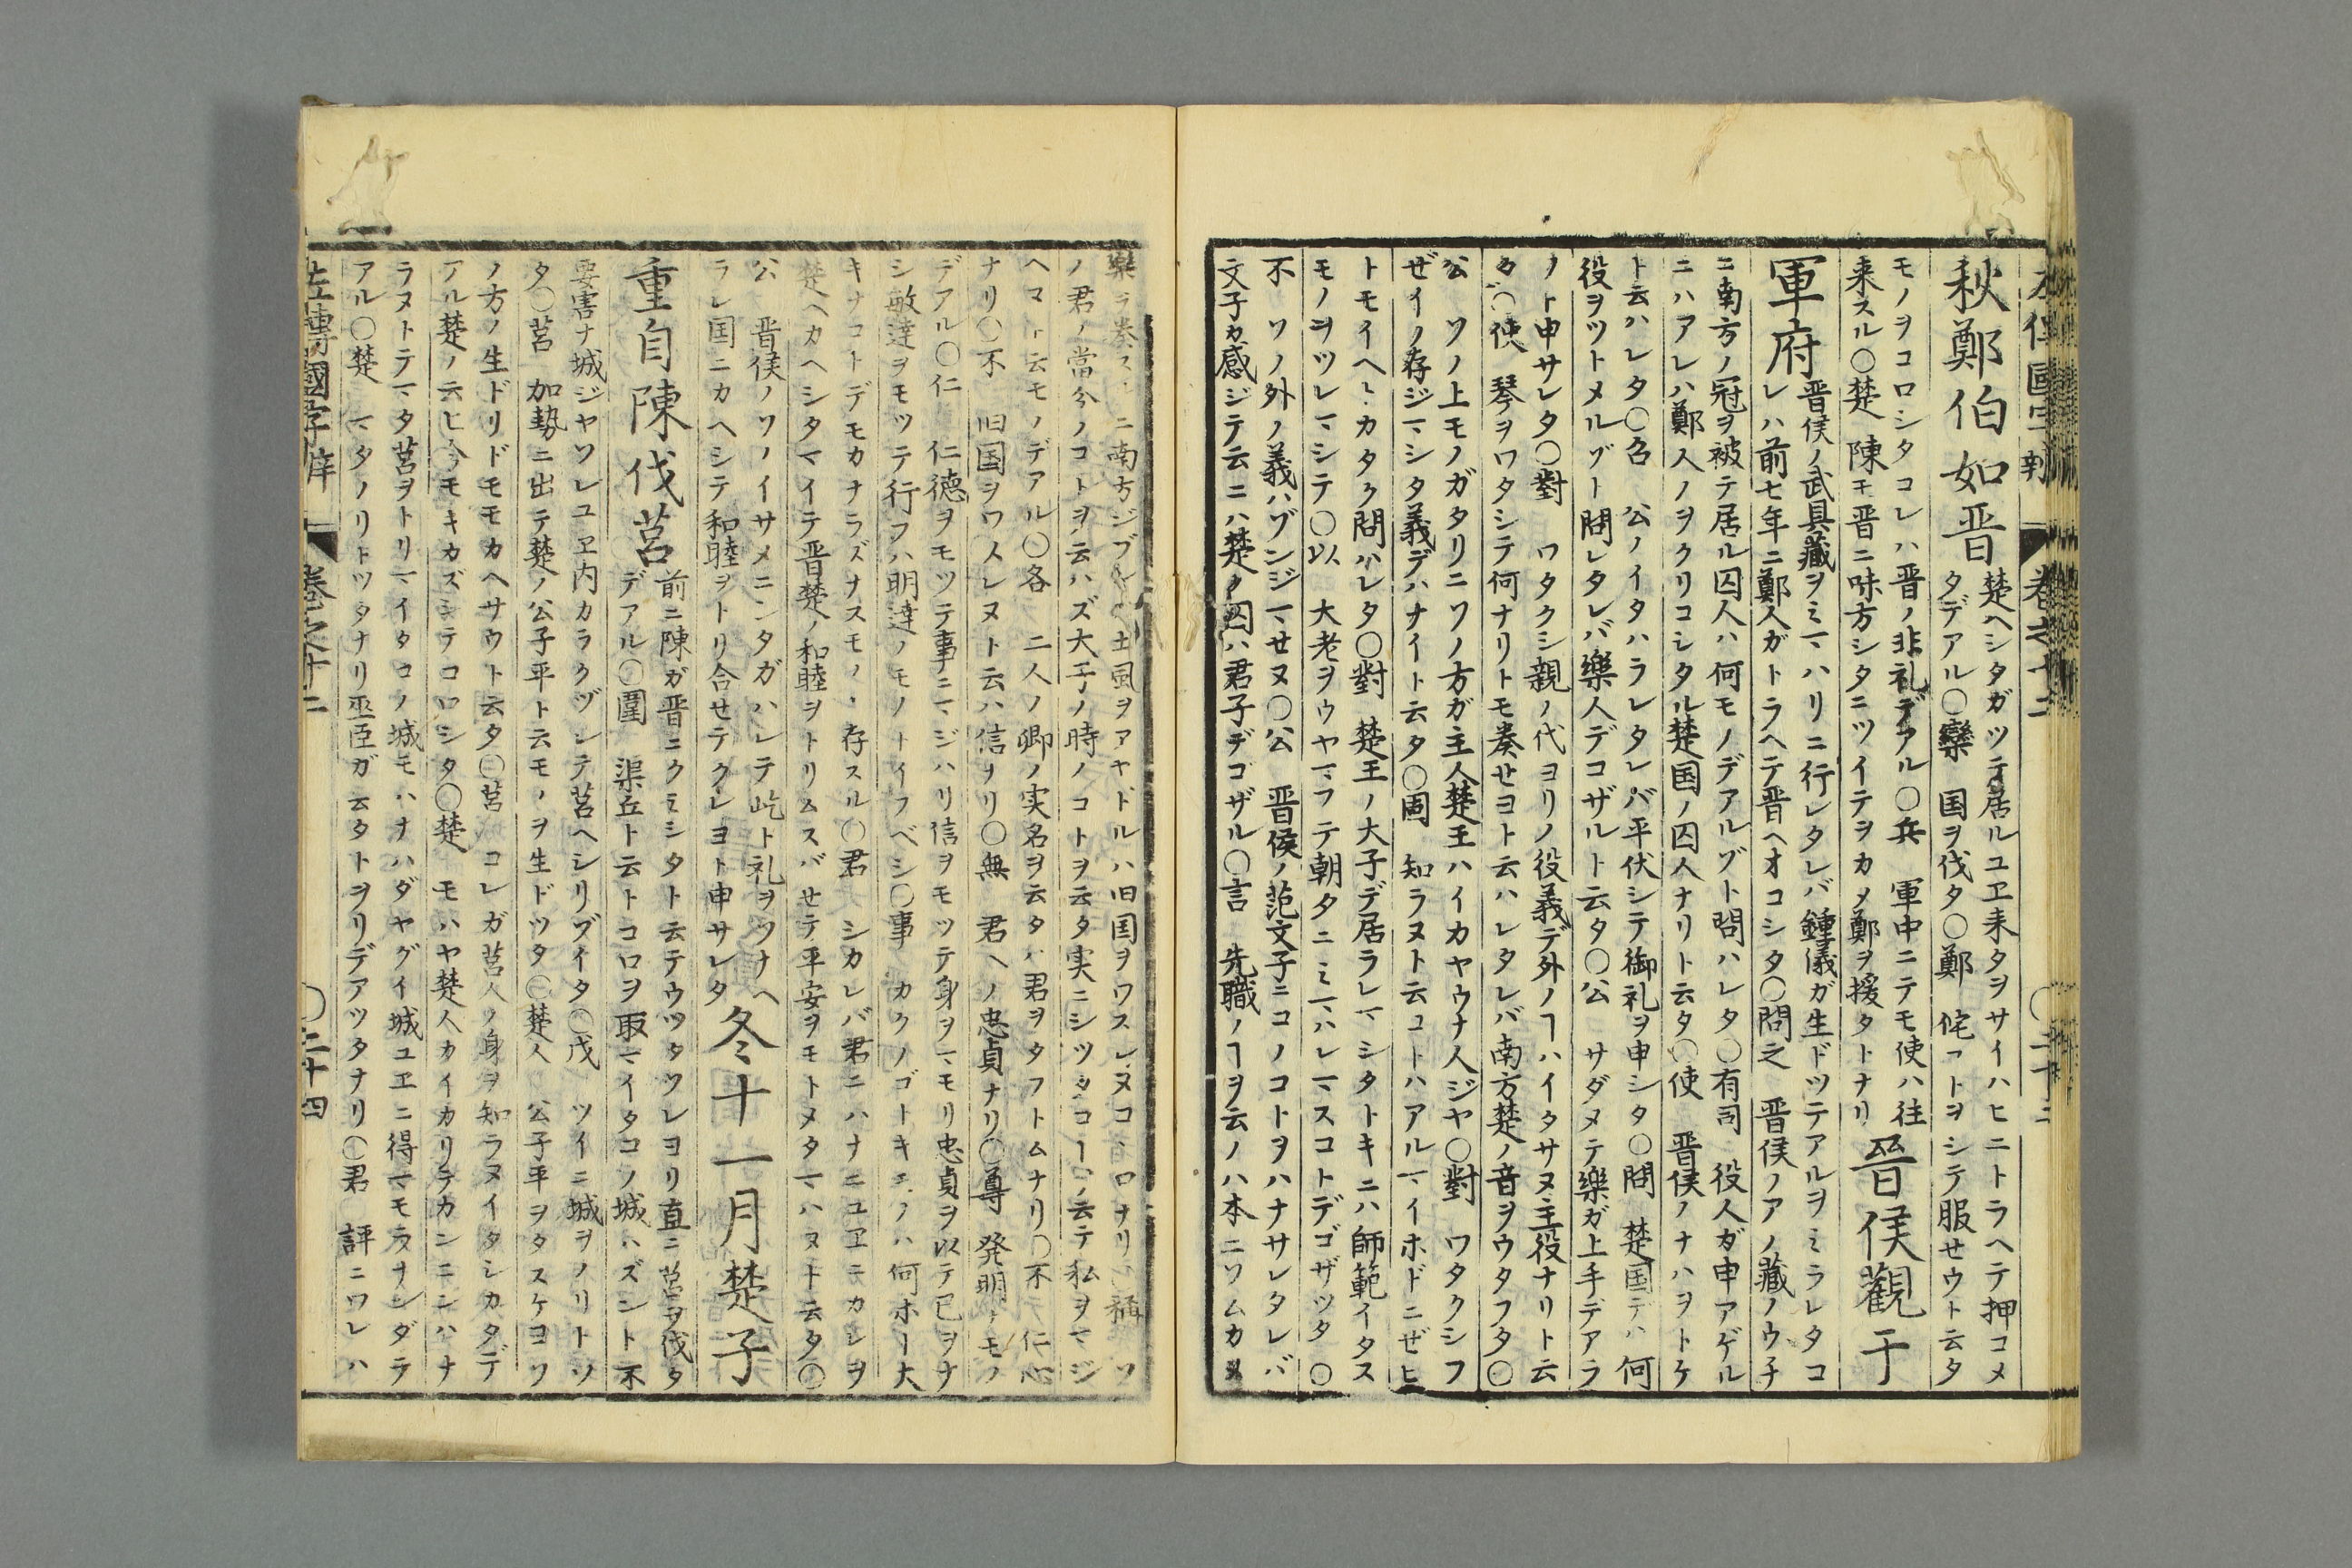 秋鄭伯如晋
楚ヘシタガツテ居ルユヱ来タヲサイハヒニトラヘテ押コメ
タデアル〇欒 国ヲ伐タ〇鄭 侘コトヲシテ服せウト云タ
モノヲコロシタコレハ晋ノ非礼デアル〇兵 軍中ニテモ使ハ往
来スル〇楚 陳モ晋ニ味方シタニツイテヲカメ鄭ヲ援タトナリ
晉侯觀于
軍府
晋侯ノ武具藏ヲミマハリニ行レタレバ鍾儀ガ生ドツテアルヲミラレタコ
レハ前七年ニ鄭人ガトラヘテ晋ヘオコシタ〇問之 晋侯ノアノ藏ノウチ
ニ南方ノ冠ヲ被テ居ル囚人ハ何モノデアルゾト問ハレタ〇有司 役人ガ申アゲル
ニハアレハ鄭人ノヲクリコシタル楚国ノ囚人ナリト云タ〇使 晋侯ノナハヲトケ
ト云ハレタ〇召 公ノイタハラレタレバ平伏シテ御礼ヲ申シタ〇問 楚国デハ何
役ヲツトメルゾト問レタレバ樂人デコザルト云タ〇公 サダメテ樂ガ上手デアラ
ノト申サレタ〇對 ワタクシ親ノ代ヨリノ役義デ外ノヿハイタサヌ主役ナリト云
タ〇使 琴ヲワタシテ何ナリトモ奏せヨト云ハレタレバ南方楚ノ音ヲウタフタ〇
公 ソノ上モノガタリニソノ方ガ主人楚王ハイカヤウナ人ジヤ〇對 ワタクシフ
ぜイノ存ジマシタ義デハナイト云タ〇固 知ラヌト云コトハアルマイホドニぜヒ
トモイヘトカタク問ハレタ〇對 楚王ノ大子デ居ラレマシタトキニハ師範イタス
モノヲツレマシテ〇以 大老ヲウヤマフテ朝タニミマハレマスコトデゴザツタ〇
不 ソノ外ノ義ハゾンジマせヌ〇公 晋侯ノ范文子ニコノコトヲハナサレタレバ
文子カ感ジテ云ニハ楚ノ囚ハ君子デゴザル〇言 先職ノヿヲ云ノハ本ニソムカヌ
樂ヲ奏スルニ南方ジブンノ土風ヲアヤドルハ旧国ヲワスレヌコヽロナリ〇稱 ソ
ノ君ノ當今ノコトヲ云ハズ大子ノ時ノコトヲ云タ実ニシツタコヿノ云テ私ヲマジ
ヘマト云モノデアル〇各 二人ノ卿ノ実名ヲ云タハ君ヲタフトムナリ〇不 仁心
ナリ〇不 旧国ヲワスレヌト云ハ信ナリ〇無 君ヘノ忠貞ナリ〇尊 発明トモノ
デアル〇仁 仁德ヲモツテ事ニマジハリ信ヲモツテ身ヲマモリ忠貞ヲ以テ已ヲナ
シ敏達ヲモツテ行フハ明達ノモノトイフベシ〇事 カクノゴトキモノハ何ホヿ大
キナコトデモカナラズナスモノヽ存スル〇君 シカレバ君ニハナニユヱニカレヲ
楚ヘカヘシタマイテ晋楚ノ和睦ヲトリムスバせテ平安ヲモトメタマハヌト云タ〇
公 晋侯ノソノイサメニシタガハレテ屹ト礼ヲソナヘ
ラレ国ニカヘシテ和睦ヲトリ合せテクレヨト申サレタ
冬十一月楚子
重自陳伐莒
前ニ陳ガ晋ニクミシタト云テウツタソレヨリ直ニ莒ヲ伐タ
デアル〇圍 渠丘ト云トコロヲ取マイタコノ城ハズント不
要害ナ城ジヤソレユヱ内カラクヅレテ莒ヘシリゾイタ〇戊 ツイニ城ヲノリトソ
タ〇莒 加勢ニ出テ楚ノ公子平ト云モノヲ生ドツタ〇楚人 公子平ヲタスケヨソ
ノ方ノ生ドリドモモカヘサウト云タ〇莒 コレガ莒人ノ身ヲ知ラヌイタシカタデ
アル楚ノ云ヒ分モキカズシテコロシタ〇楚 モハヤ楚人カイカリテカンニンハナ
ラヌトテマタ莒ヲトリマイタコノ城モハナハダヤグイ城ユヱニ得マモラナンダテ
アル〇楚 マタノリトツタナリ巫臣ガ云タトヲリデアツタナリ〇君 評ニワレハ
左傳國字辨 卷之十二 〇二十四